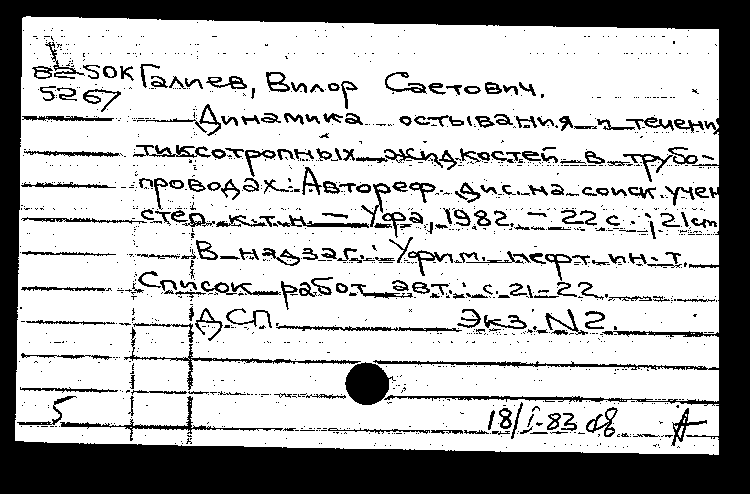 82-50К Галиев, Вилор Саетович.
5267
Динамика остывания и течения
тиксотропных жидкостей в трубо-
проводах: Автореф. дис. на соиск. учен
степ. к.т.н. — Уфа, 1982. — 22 с.; 21 cm
В надзаг.: Уфим. нефт. ин-т.
Список работ авт.: с. 21-22.
ДСП. Экз. N2.
5 18/I-83